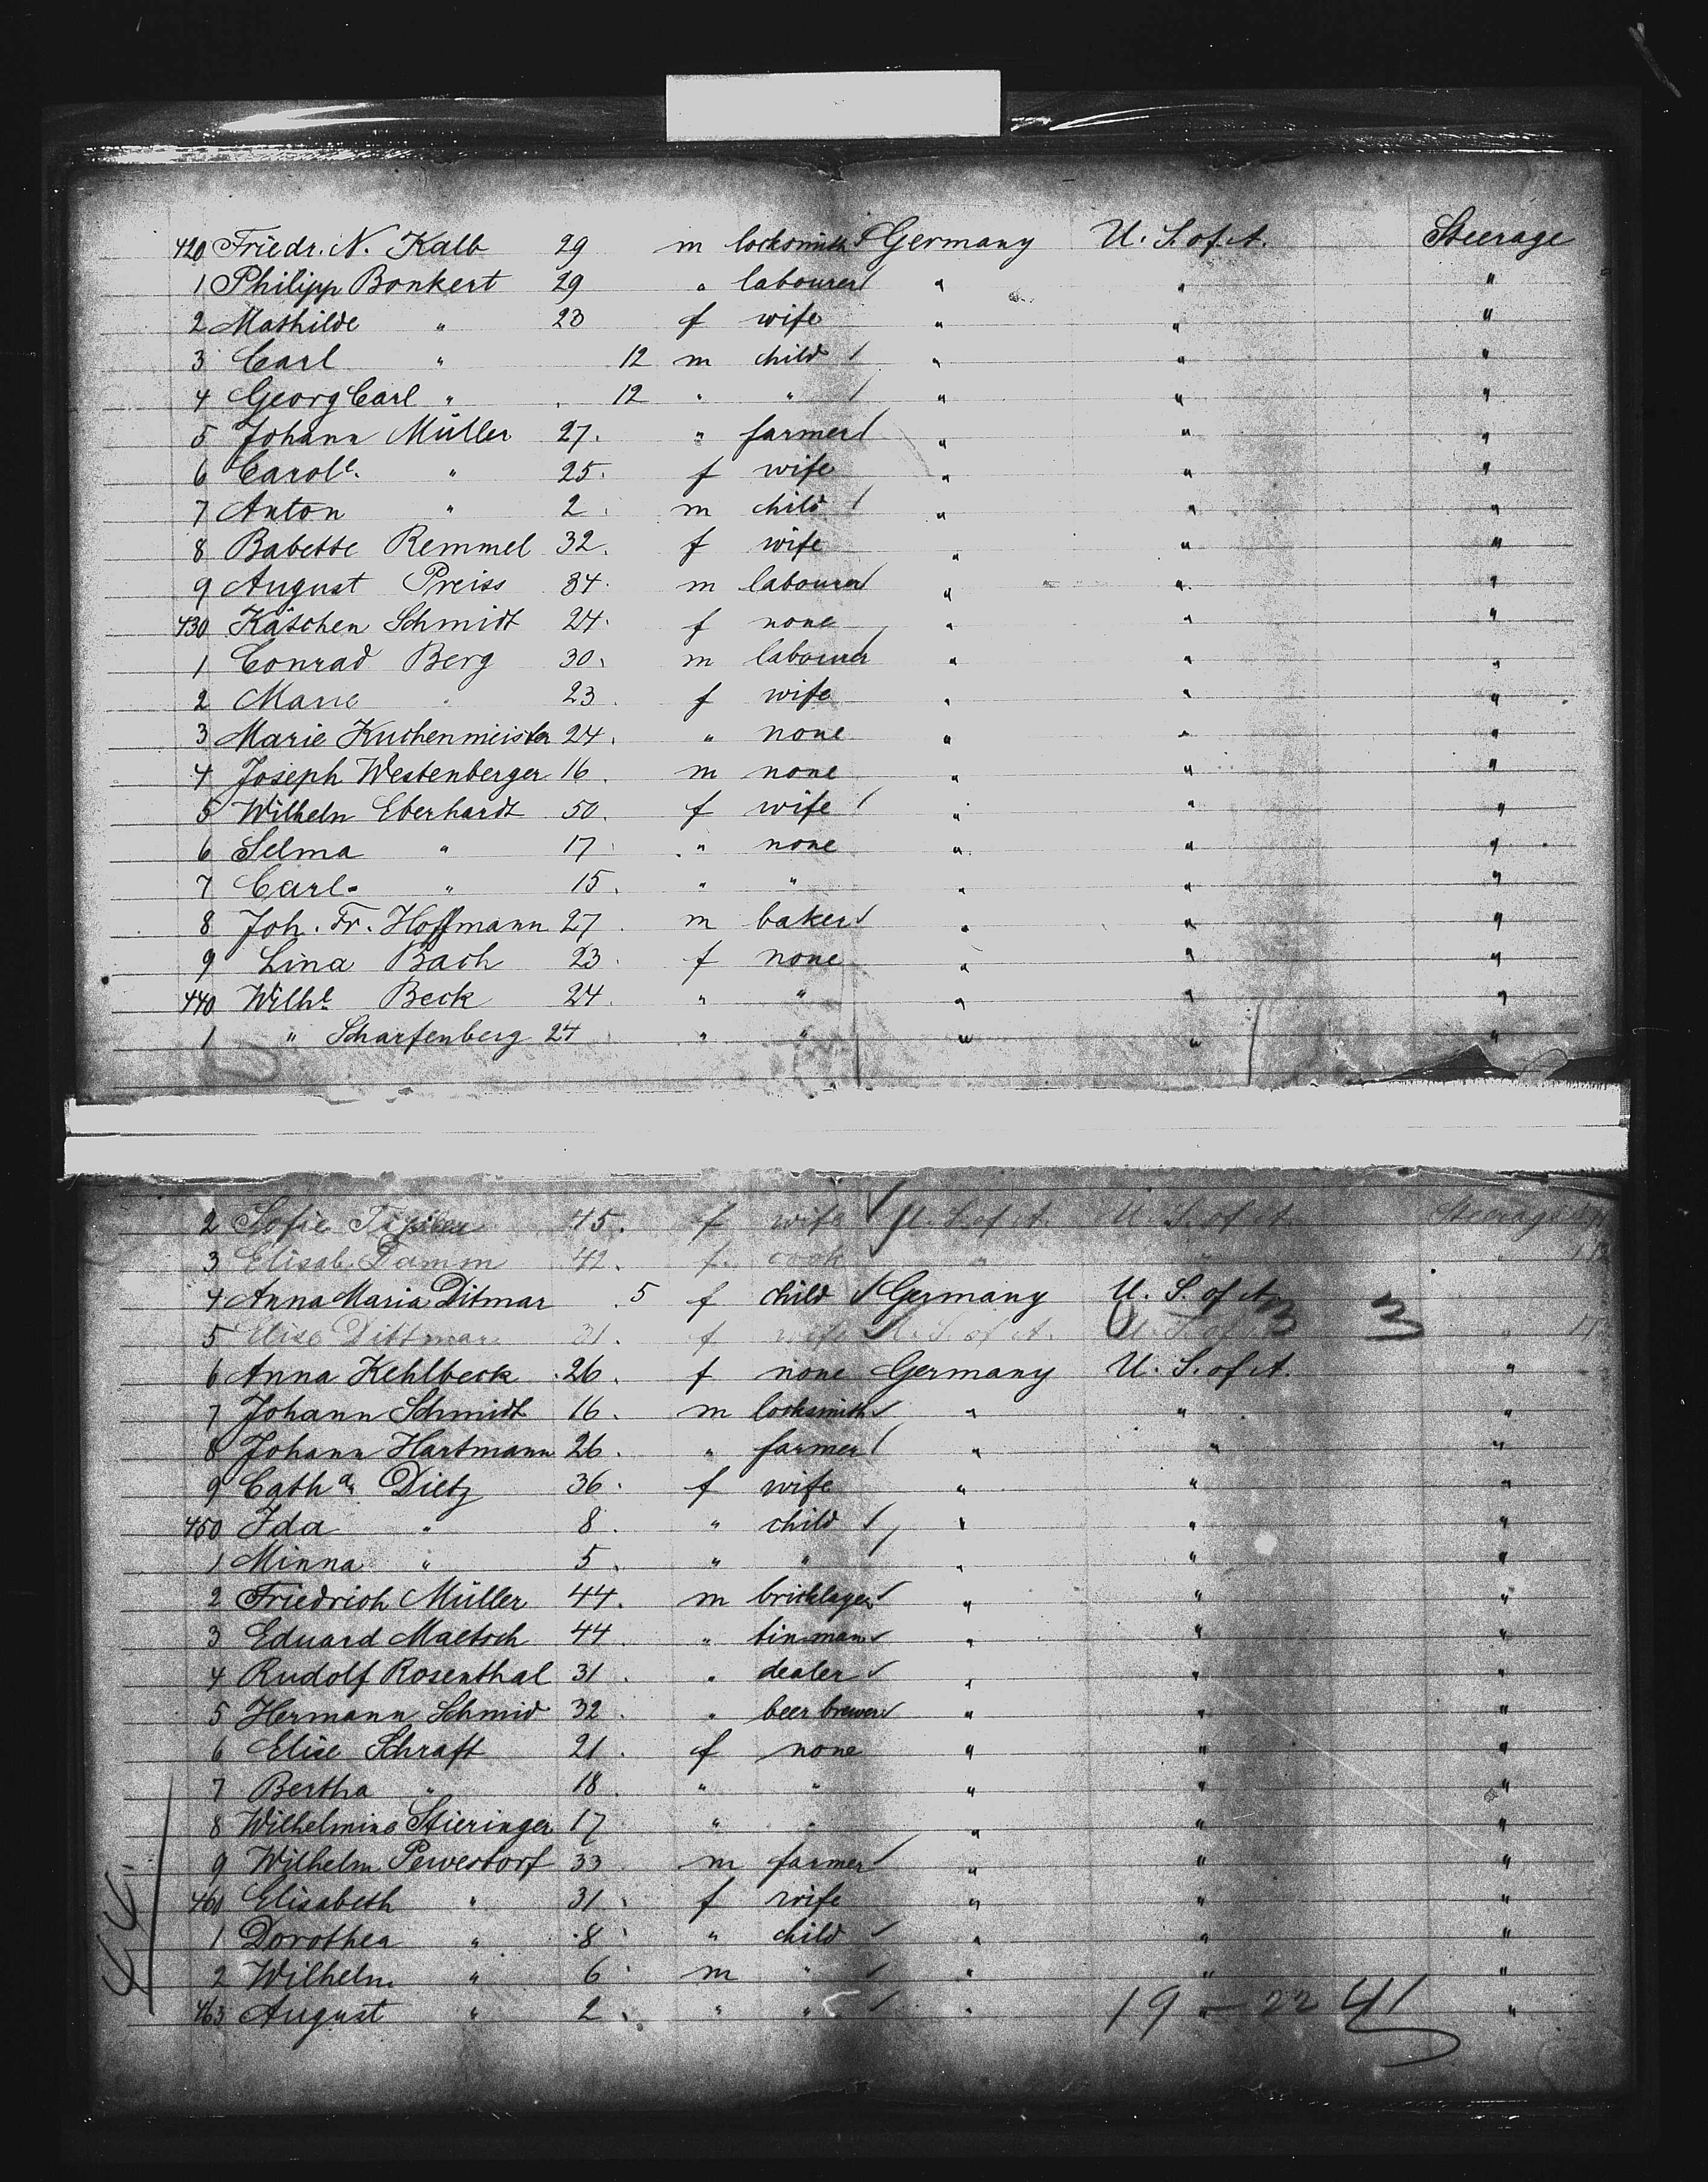 420 Friedr. N. Kalb 29 m locksmith Germany U. S. of A. Steerage
1 Philipp Bonkert 29 " labourer " " "
2 Mathilde " 23 f wife " " "
3 Carl " 12 m child " " "
4 Georg Carl " 12 " " " " "
5 Johann Müller 27. " farmer " " "
6 Carole. " 25. f wife " " "
7 Anton " 2. m child " " "
8 Babette Remmel 32. f wife " " "
9 August Preiss 34. m labourer " " "
430 Kätchen Schmidt 24. f none " " "
1 Conrad Berg 30. m labourer " " "
2 Marie " 23. f wife " " "
3 Marie Kuchenmeister 24. " none " " "
4 Joseph Westenberger 16. m none " " "
5 Wilhelm Eberhardt 50. f wife " " "
6 Selma " 17. " none " " "
7 Carl. " 15. " " " " "
8 Joh. Fr. Hoffmann 27. m baker " " "
9 Lina Bach 23. f none " " "
440 Wilhe. Beck 24. " " " " "
1 " Scharfenberg 24 " " " " "
2 Sofie 45. f wife U. S. of A. U. S. of A. Steerage
3 Elisab. Damm 42. f. cook " " "
4 Anna Maria Ditmar .5 f child Germany U. S. of A.
5 Elise Dittmar 31. f wife U. S. of A. U. S. of A. 3 3 "
6 Anna Kehlbeck 26. f none Germany U. S. of A. "
7 Johann Schmidt 16. m locksmith " " "
8 Johann Hartmann 26. " farmer " " "
9 Catha. Dietz 36. f wife " " "
450 Ida " 8. " child " " "
1 Minna " 5. " " " " "
2 Friedrich Müller 44. m bricklayer " " "
3 Eduard Maetsch 44. " tinman " " "
4 Rudolf Rosenthal 31. " dealer " " "
5 Hermann Schmid 32. " beer brewer " " "
6 Elise Schraft 21. f none " " "
7 Bertha " 18. " " " " "
8 Wilhelmine Stieringer 17 " " " " "
9 Wilhelm Pewestorf 33 m farmer " " "
460 Elisabeth " 31. f wife " " "
1 Dorothea " 8. " child " " "
2 Wilhelm " 6. m " " " "
463 August " 2. " " " " "
19 - 22 41